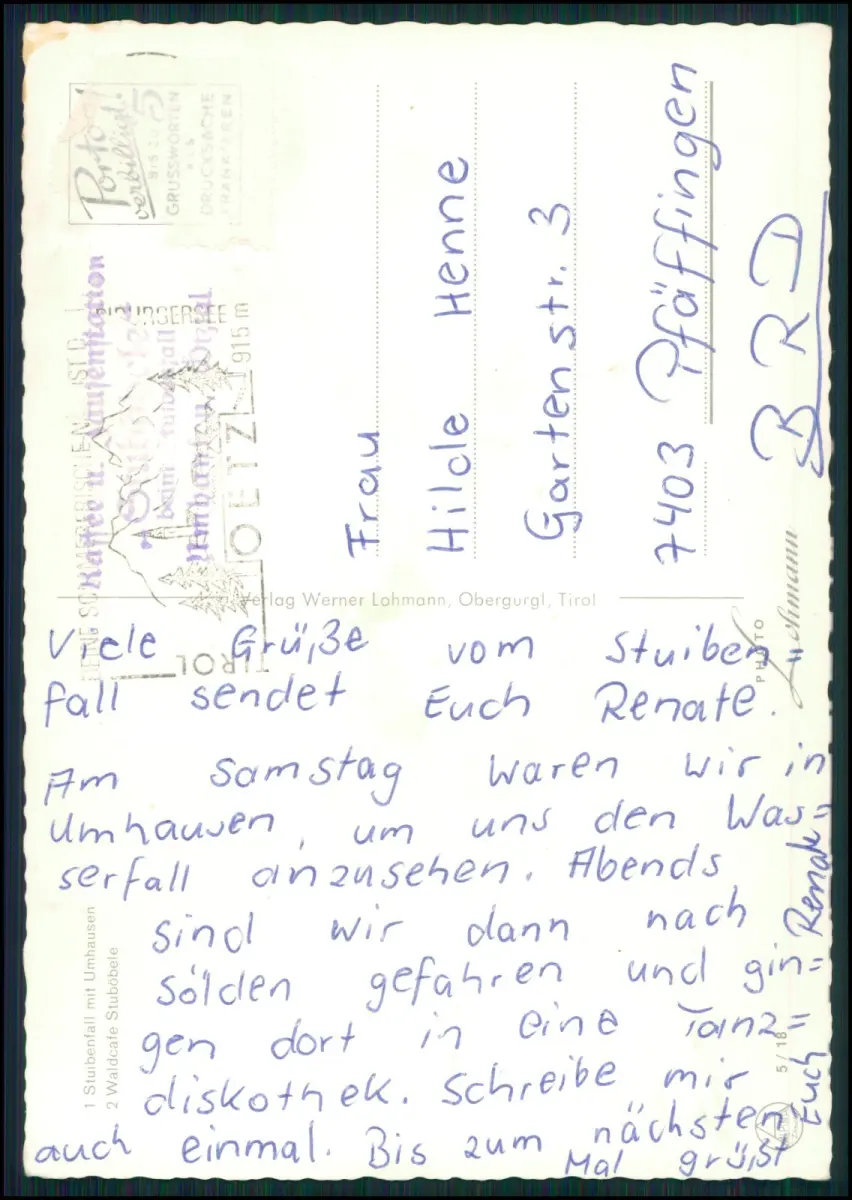 Porto
verbilligt!
BIS ZU 5
GRUSSWORTEN
ALS
DRUCKSACHE
FRANKIEREN
Kaffee u. Jausenstation
beim Stuibenfall
Umhausen
OETZ
915 m
TIROL
Frau
Hilde Henne
Gartenstr. 3
7403 Pfäffingen
BRD
Verlag Werner Lohmann, Obergurgl, Tirol
PHOTO
Lohmann
Viele Grüße vom Stuiben=
fall sendet Euch Renate.
Am Samstag waren wir in
Umhausen, um uns den Was=
serfall anzusehen. Abends
sind wir dann nach
Sölden gefahren und gin=
gen dort in eine Tanz=
diskothek. Schreibe mir
auch einmal. Bis zum nächsten
Mal grüßt
Euch Renate
1 Stuibenfall mit Umhausen
2 Waldcafe Stuböbele
5/18